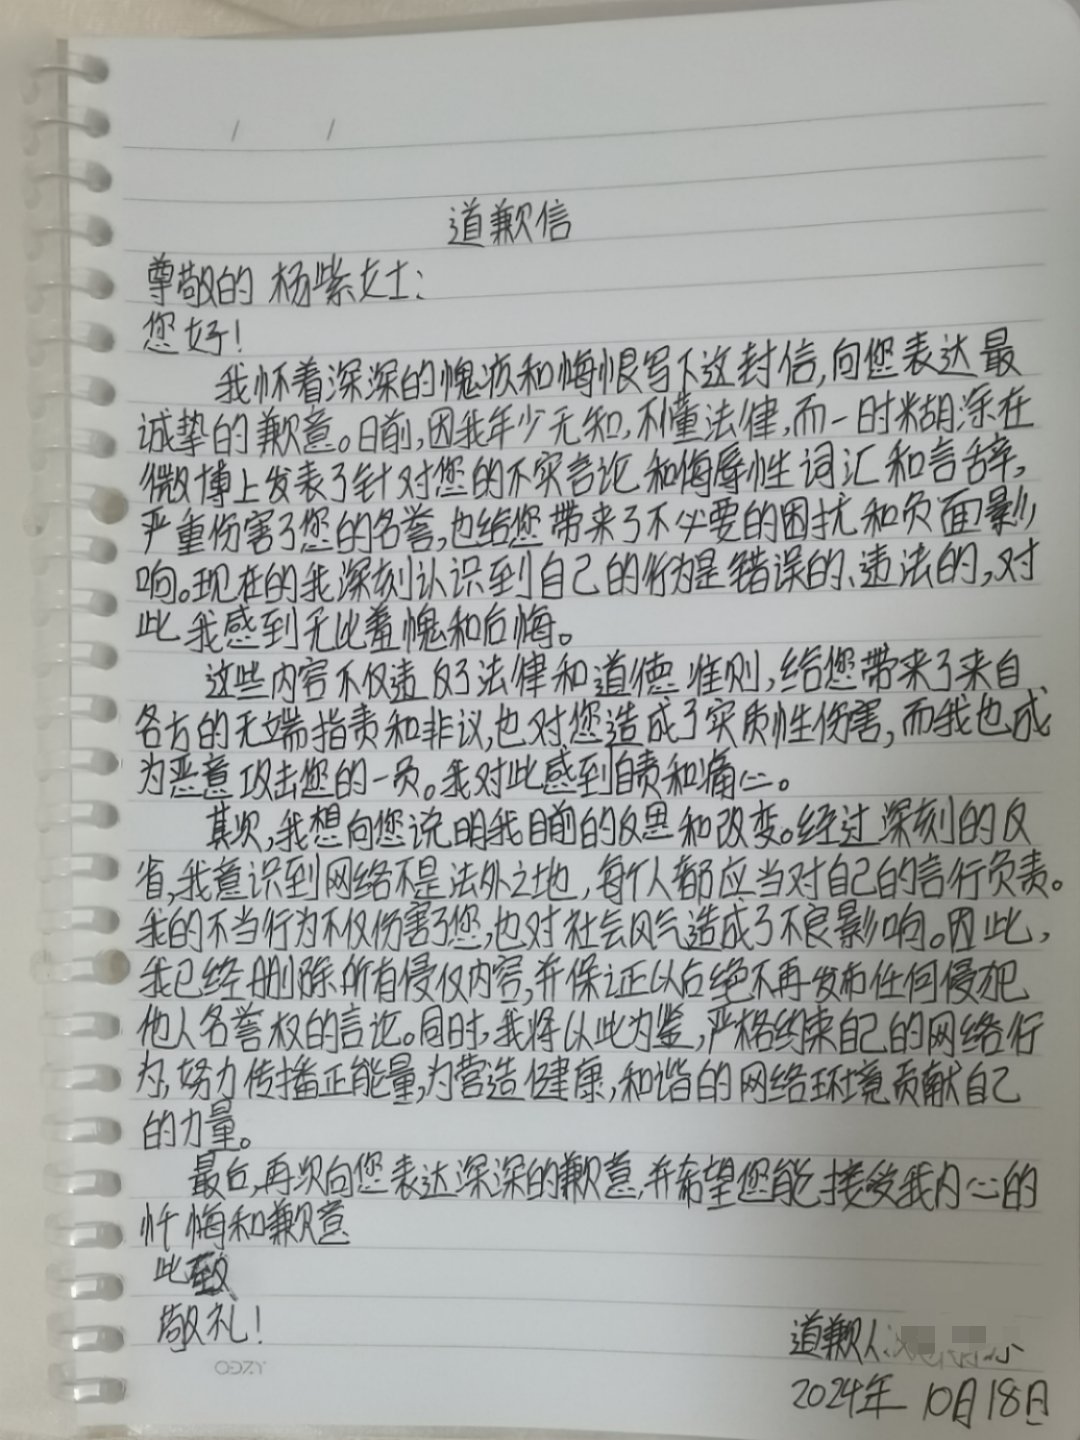 道歉信
尊敬的 杨紫女士：
您好！
我怀着深深的愧疚和悔恨写下这封信,向您表达最
诚挚的歉意。日前,因我年少无知,不懂法律,而一时糊涂在
微博上发表了针对您的不实言论和侮辱性词汇和言辞,
严重伤害了您的名誉,也给您带来了不必要的困扰和负面影
响。现在的我深刻认识到自己的行为是错误的、违法的,对
此我感到无比羞愧和后悔。
这些内容不仅违反了法律和道德准则,给您带来了来自
各方的无端指责和非议,也对您造成了实质性伤害,而我也成
为恶意攻击您的一员。我对此感到自责和痛心。
其次,我想向您说明我目前的反思和改变。经过深刻的反
省,我意识到网络不是法外之地,每个人都应当对自己的言行负责。
我的不当行为不仅伤害了您,也对社会风气造成了不良影响。因此,
我已经删除所有侵权内容,并保证以后绝不再发布任何侵犯
他人名誉权的言论。同时,我将以此为鉴,严格约束自己的网络行
为,努力传播正能量,为营造健康,和谐的网络环境贡献自己
的力量。
最后,再次向您表达深深的歉意,并希望您能接受我内心的
忏悔和歉意
此致
敬礼!
道歉人:
2024年 10月18日
OGZY